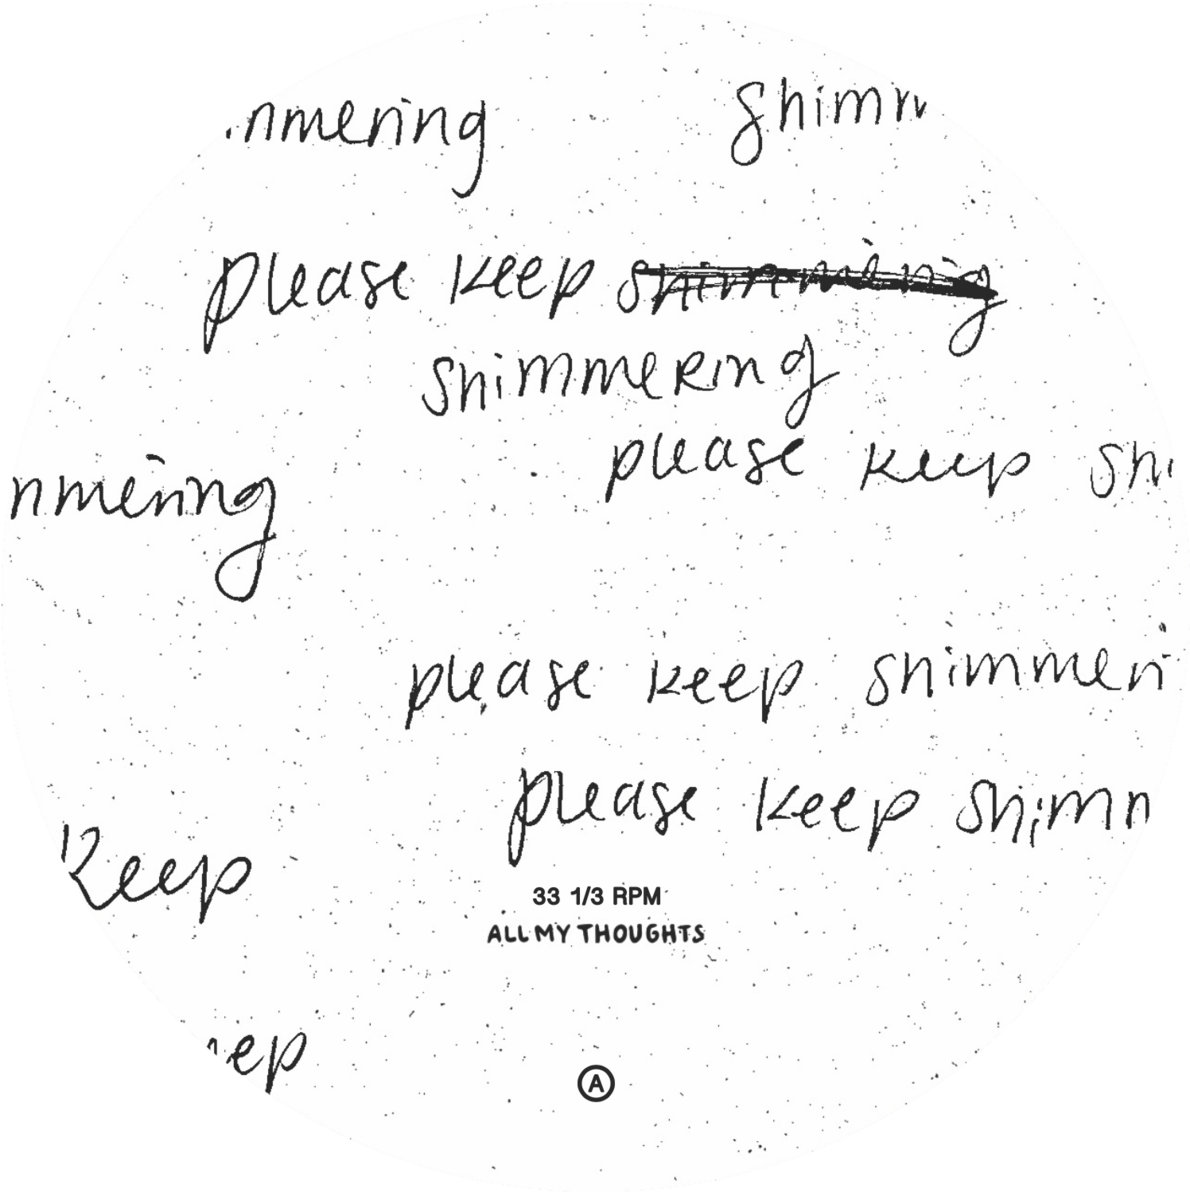 nmering shimm
please keep shimmering
shimmering
please keep shi
nmering
please keep shimmeri
please keep shimn
keep
33 1/3 RPM
ALL MY THOUGHTS
eep
A